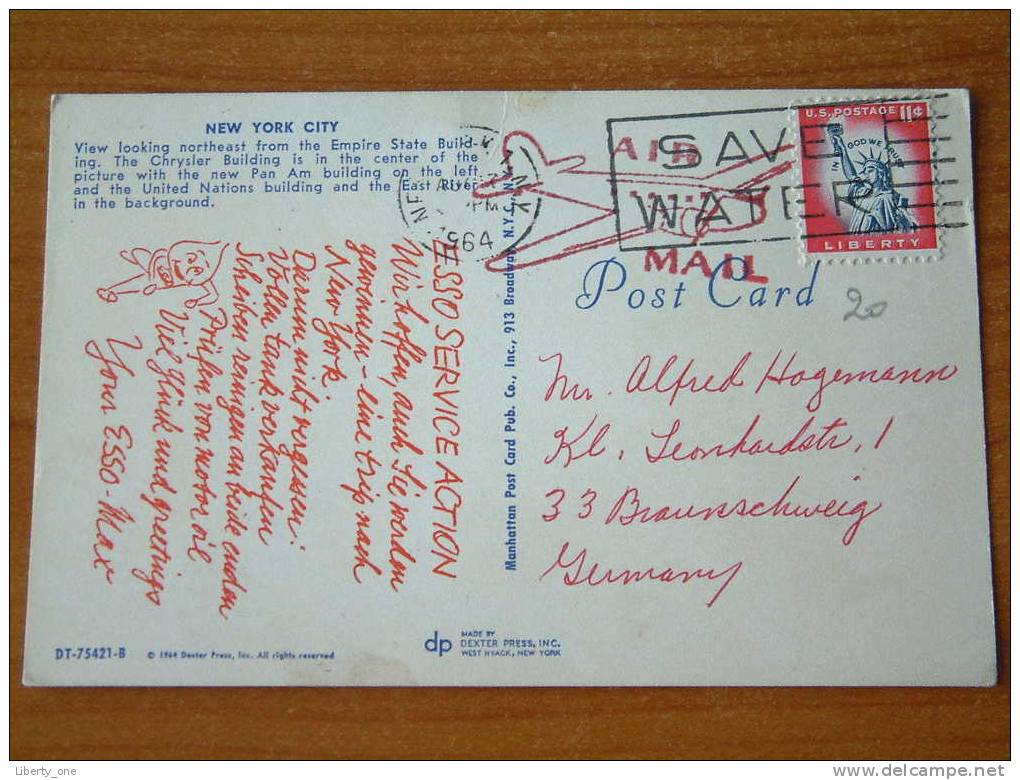 NEW YORK CITY
View looking northeast from the Empire State Build-
ing. The Chrysler Building is in the center of the
picture with the new Pan Am building on the left
and the United Nations building and the East River
in the background.
ESSO SERVICE ACTION
Wir hoffen, auch Sie werden
gewinnen - eine trip nach
New York
Darum nicht vergessen:
Vollen tank verkaufen
Scheiben reinigen an beide enden
Prüfen von motor oil
Viel glück und greetings
Your ESSO-Max
Manhattan Post Card Pub. Co., Inc., 913 Broadway, N.Y.C., N.Y.
PM
1964
AIR
MAIL
SAVE
WATER
U.S. POSTAGE 11¢
IN GOD WE TRUST
LIBERTY
Post Card
20
Mr. Alfred Hagemann
Kl. Leonhardstr. 1
33 Braunschweig
Germany
DT-75421-B © 1964 Dexter Press, Inc. All rights reserved
dp MADE BY
DEXTER PRESS, INC.
WEST NYACK, NEW YORK
Liberty_one
http://www.delcampe.net